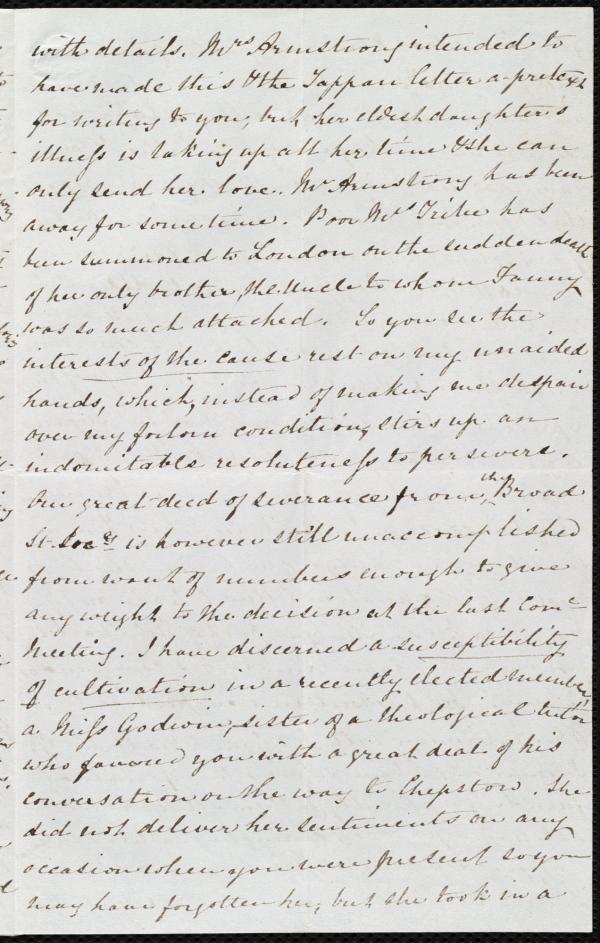 with details. Mrs Armstrong intended to
have made this & the Tappan letter a pretext
for writing to you, but her eldest daughter's
illness is taking up all her time & she can
only send her love. Mr Armstrong has been
away for some time. Poor Mrs Tribe has
been summoned to London on the sudden death
of her only brother, the Uncle to whom Fanny
was so much attached. So you see the
interests of the cause rest on my unaided
hands, which, instead of making me despair
over my forlorn condition, stirs up an
indomitable resoluteness to persevere.
Our great deed of severance from the Broad
St. Socy is however still unaccomplished
from want of numbers enough to give
any weight to the decision at the last Come
Meeting. I have discerned a susceptibility
of cultivation in a recently elected member,
a Miss Godwin, sister of a theological tutor
who favored you with a great deal of his
conversation on the way to Chepstow. She
did not deliver her sentiments on any
occasion when you were present so you
may have forgotten her, but she took in a